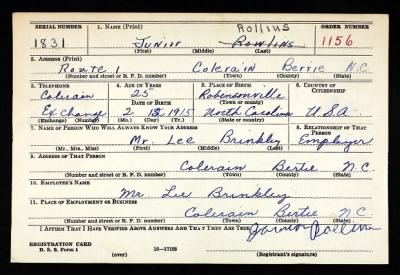 SERIAL NUMBER 1. NAME (Print) Rollins ORDER NUMBER
1831 Junior Rowlins 1156
(First) (Middle) (Last)
2. ADDRESS (Print)
Route 1 Colerain Bertie N.C.
(Number and street or R. F. D. number) (Town) (County) (State)
3. TELEPHONE 4. AGE IN YEARS 5. PLACE OF BIRTH 6. COUNTRY OF CITIZENSHIP
Colerain 25 Robersonville
DATE OF BIRTH (Town or county)
Exchange 2 18 1915 North Carolina U.S.A.
(Exchange) (Number) (Mo.) (Day) (Yr.) (State or country)
7. NAME OF PERSON WHO WILL ALWAYS KNOW YOUR ADDRESS 8. RELATIONSHIP OF THAT PERSON
Mr. Lee Brinkley Employer
(Mr., Mrs., Miss) (First) (Middle) (Last)
9. ADDRESS OF THAT PERSON
Colerain Bertie N.C.
(Number and street or R. F. D. number) (Town) (County) (State)
10. EMPLOYER'S NAME
Mr. Lee Brinkley
11. PLACE OF EMPLOYMENT OR BUSINESS
Colerain Bertie N.C.
(Number and street or R. F. D. number) (Town) (County) (State)
I AFFIRM THAT I HAVE VERIFIED ABOVE ANSWERS AND THAT THEY ARE TRUE.
REGISTRATION CARD
D. S. S. Form 1 16—17105
(over) (Registrant's signature)